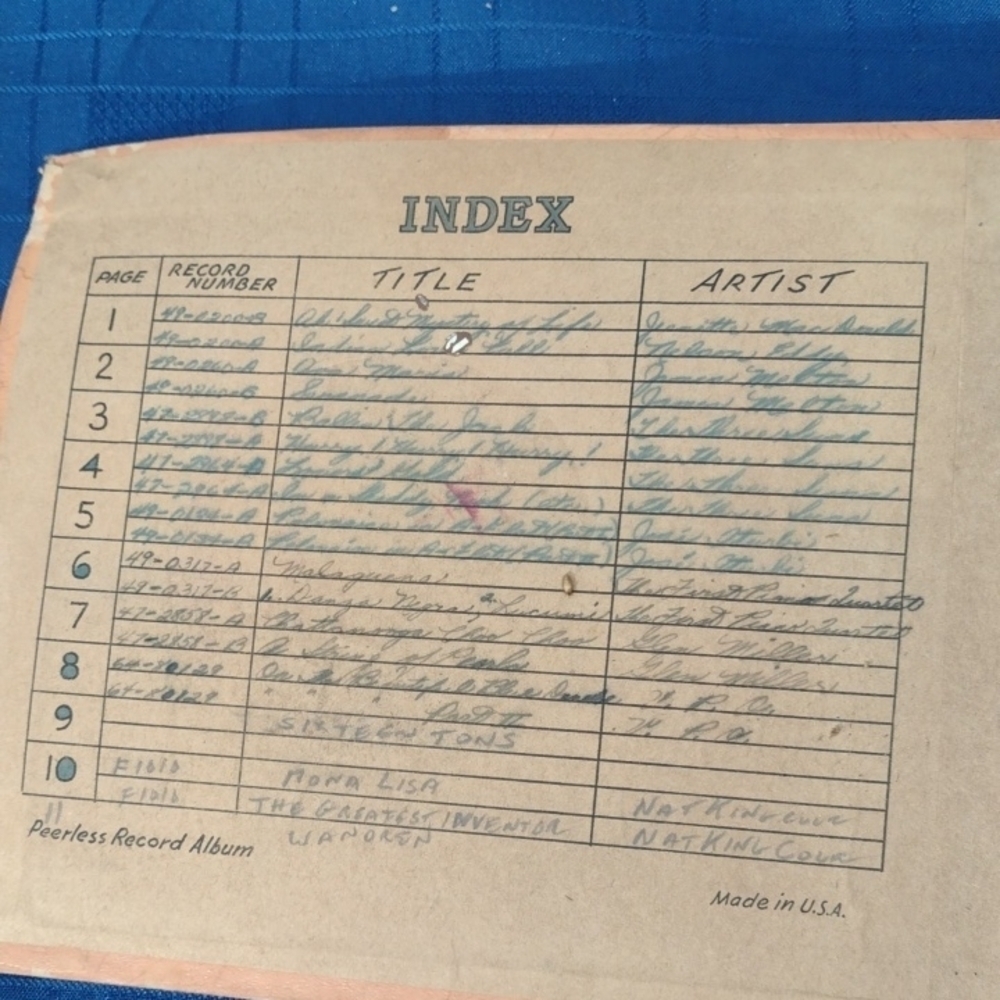 INDEX
PAGE RECORD NUMBER TITLE ARTIST
1 49-0200-B Ah! Sweet Mystery of Life Jeanette MacDonald
49-0200-A Indian Call Nelson Eddy
2 49-0260-A Ave Maria James Melton
49-0260-B Serenade James Melton
3 47-2898-B Ballin' The Jack The Three Suns
47-2898-A Hurry! Hurry! Hurry! The Three Suns
4 47-2964-B The Three Suns
47-2964-A The Three Suns
5 49-0134-A Polonaise in José Iturbi
49-0134-A Polonaise in José Iturbi
6 49-0317-A Malaguena The First Piano Quartet
49-0317-B 1. Danza Negra 2. Lucumi The First Piano Quartet
7 47-2858-A Chattanooga Choo Choo Glen Miller
47-2858-B A String of Pearls Glen Miller
8 64-80129 On the Blue
64-80129 " " " Part II
9 SIXTEEN TONS
10 F1010 MONA LISA NAT KING COLE
F1010 THE GREATEST INVENTOR NAT KING COLE
11
Peerless Record Album
Made in U.S.A.